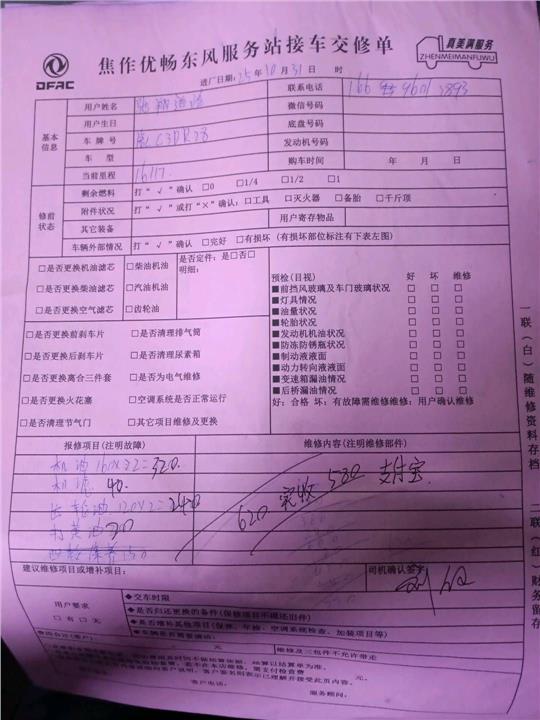 DFAC
焦作优畅东风服务站接车交修单
真美满服务
ZHENMEIMANFUWU
进厂日期：25年10月31日 时
基本信息
用户姓名
联系电话
用户生日
微信号码
车牌号
底盘号码
车 型
发动机号码
当前里程 16117.
购车时间 年 月 日
修前状态
剩余燃料 打“√”确认 □0 □1/4 □1/2 □1
附件状况 打“√”或打“×”确认：□工具 □灭火器 □备胎 □千斤顶
其它装备
用户寄存物品
车辆外部情况 打“√”确认 □完好 □有损坏（有损坏部位标注有下表左图）
□是否更换机油滤芯 □柴油机油
□是否更换柴油滤芯 □汽油机油
□是否更换空气滤芯 □齿轮油
是否定件：是□否□
明细：
□是否更换前刹车片 □是否清理排气筒
□是否更换后刹车片 □是否清理尿素箱
□是否更换离合三件套 □是否为电气维修
□是否更换火花塞 □空调系统是否正常运行
□是否清理节气门 □其它项目维修及更换
预检(目视) 好 坏 维修
■前挡风玻璃及车门玻璃状况 □ □ □
■灯具情况 □ □ □
■油量状况 □ □ □
■轮胎状况 □ □ □
■发动机机油状况 □ □ □
■防冻防锈瓶状况 □ □ □
■制动液液面 □ □ □
■动力转向液液面 □ □ □
■变速箱漏油情况 □ □ □
■后桥漏油情况 □ □ □
好：合格 坏：有故障需维修维修：用户确认维修
报修项目(注明故障)
维修内容(注明维修部件)
机油 160×2=320.
机滤 40.
120×2=240
打黄油 20
620. 实收 580 支付宝
建议维修项目或增补项目：
司机确认签字
用户要求
□有□无
◆交车时限
◆是否归还更换的备件(保修项目不退还旧件)
◆是否增补其他项目(保养、年检、空调系统检查、加装项目等)
元
维修及三包件不允许带走
客户电话：
服务顾问：
一联（白）随维修资料存档
二联（红）财务留存